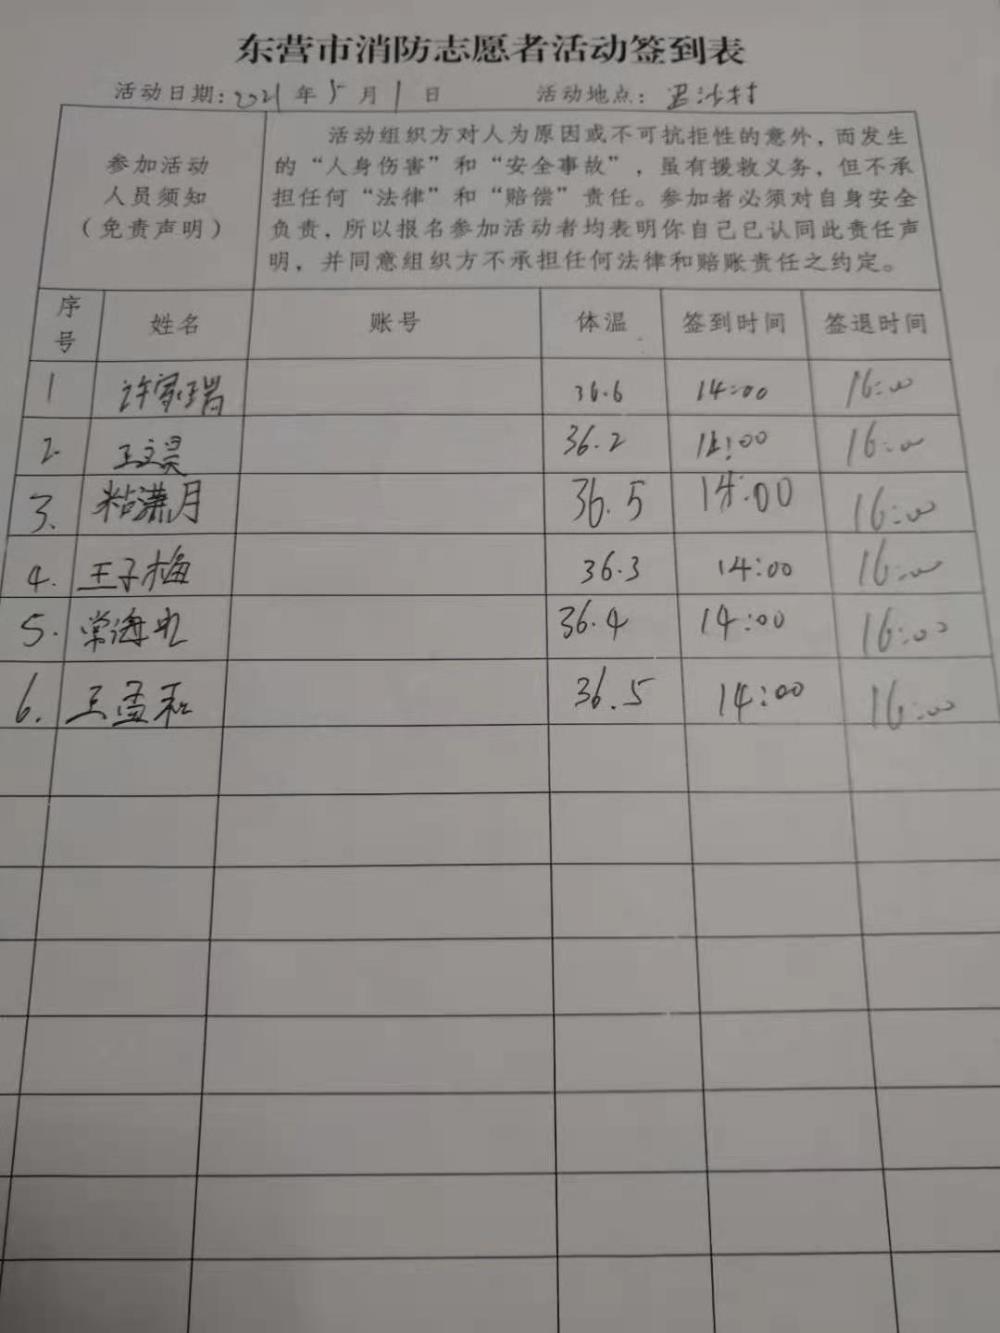 东营市消防志愿者活动签到表
活动日期:2021年5月1日 活动地点: 村
参加活动
人员须知
(免责声明)
活动组织方对人为原因或不可抗拒性的意外,而发生
的“人身伤害”和“安全事故”,虽有援救义务,但不承
担任何“法律”和“赔偿”责任。参加者必须对自身安全
负责,所以报名参加活动者均表明你自己已认同此责任声
明,并同意组织方不承担任何法律和赔账责任之约定。
序号 姓名 账号 体温 签到时间 签退时间
1 许家瑞 36.6 14:00 16:00
2. 王文昊 36.2 14:00 16:00
3. 粘潇月 36.5 14:00 16:00
4. 王子梅 36.3 14:00 16:00
5. 常海 36.4 14:00 16:00
6. 王孟 36.5 14:00 16:00